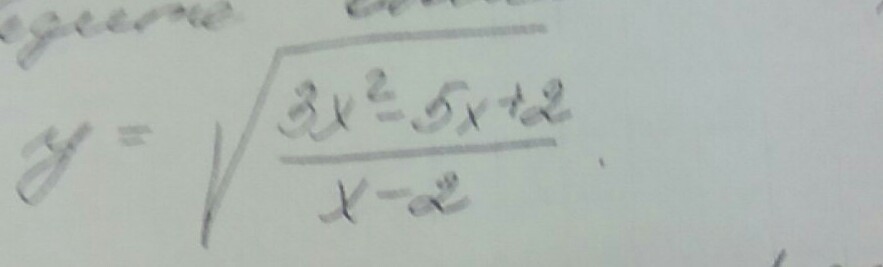 y = √((3x²-5x+2)/(x-2)).